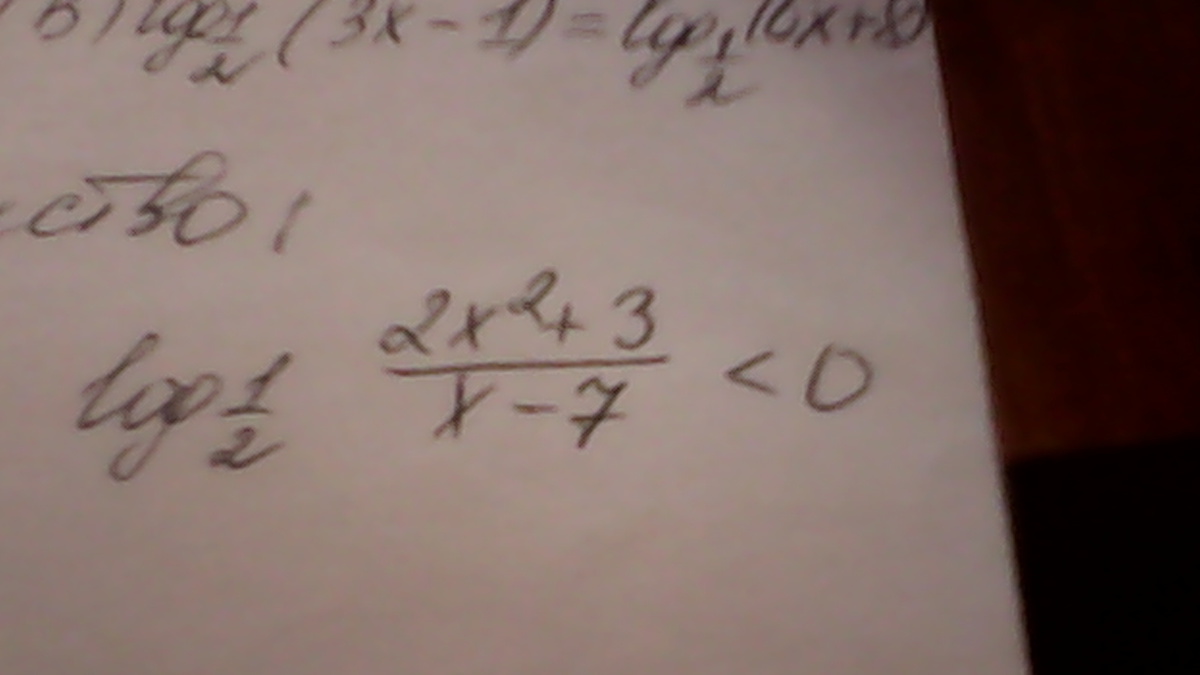 б) log 1/2 (3x - 1) = log 1/2 (6x+8)
ство,
log 1/2 (2x²+3)/(x-7) < 0